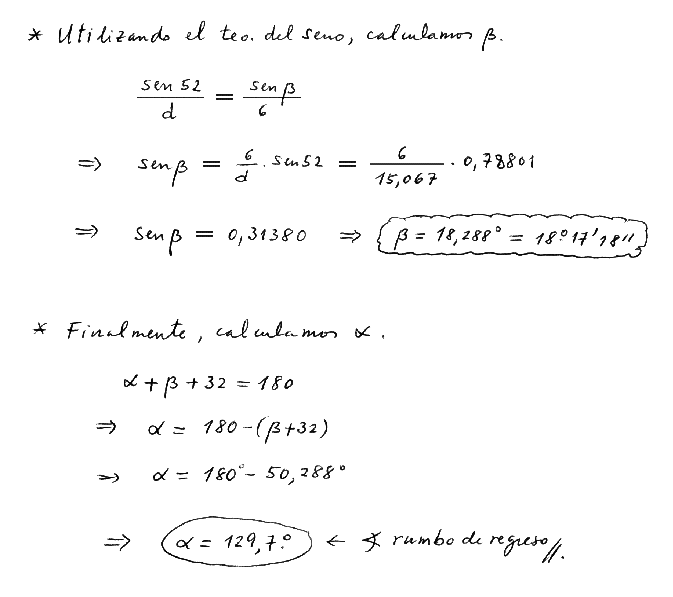 * Utilizando el teo. del seno, calculamos β.
sen 52 / d = sen β / 6
⇒ sen β = 6/d · sen 52 = 6/15,067 · 0,78801
⇒ sen β = 0,31380 ⇒ β = 18,288° = 18° 17' 18''
* Finalmente, calculamos α.
α + β + 32 = 180
⇒ α = 180 - (β + 32)
⇒ α = 180° - 50,288°
⇒ α = 129,7° ← ∡ rumbo de regreso //.